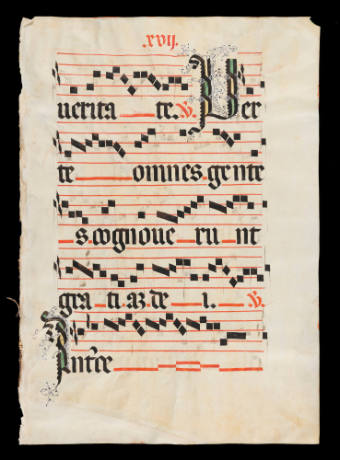 .xvij.
uerita te. ℣. Per
te omnes gente
s. cognoue ru nt
gra ti az de i. ℣.
Intͤr ce